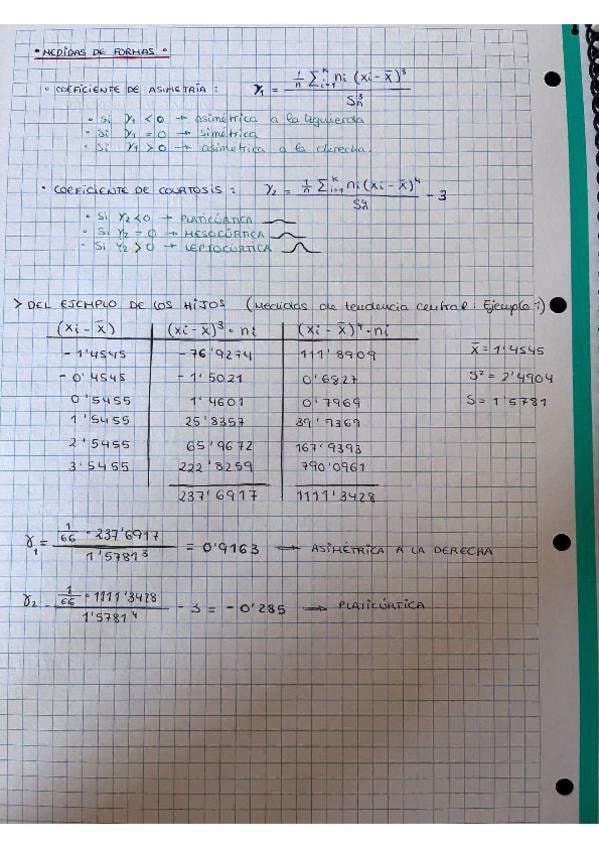 • MEDIDAS DE FORMAS •
• COEFICIENTE DE ASIMETRÍA : γ₁ = (1/n ∑ᵢ₌₁ᴷ nᵢ (xᵢ - x̄)³) / Sₙ³
• Si γ₁ < 0 → asimétrica a la izquierda
• Si γ₁ = 0 → simétrica
• Si γ₁ > 0 → asimétrica a la derecha.
• COEFICIENTE DE COURTOSIS : γ₂ = (1/n ∑ᵢ₌₁ᴷ nᵢ (xᵢ - x̄)⁴) / Sₙ⁴ - 3
• Si γ₂ < 0 → PLATICÚRTICA
• Si γ₂ = 0 → MESOCÚRTICA
• Si γ₂ > 0 → LEPTOCÚRTICA
> DEL EJEMPLO DE LOS HIJOS (Medidas de tendencia central : Ejemplo 1)
(xᵢ - x̄) (xᵢ - x̄)³ · nᵢ (xᵢ - x̄)⁴ · nᵢ
- 1'4545 - 76'9274 111'8909 x̄ = 1'4545
- 0'4545 - 1'5021 0'6827 S² = 2'4904
0'5455 1'4601 0'7969 S = 1'5781
1'5455 25'8357 39'9369
2'5455 65'9672 167'9393
3'5455 222'8259 790'0961
237'6917 1111'3428
γ₁ = (1/66 · 237'6917) / 1'5781³ = 0'9163 → ASIMÉTRICA A LA DERECHA
γ₂ = (1/66 · 1111'3428) / 1'5781⁴ - 3 = - 0'285 → PLATICÚRTICA